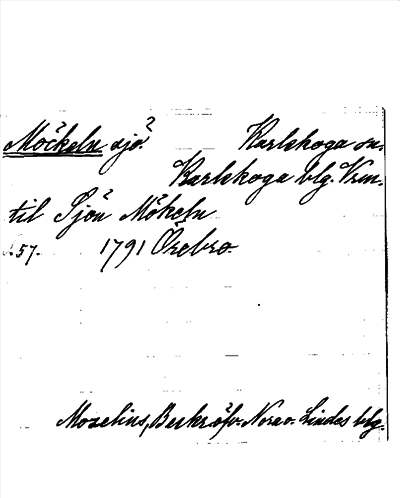 Möckeln sjö?
Karlskoga sn.
Karlskoga blg. Vrm.
til Sjön Mökeln
s. 57. 1791 Örebro.
Mozelius, Beskr. öfv. Nora o. Lindes blg.